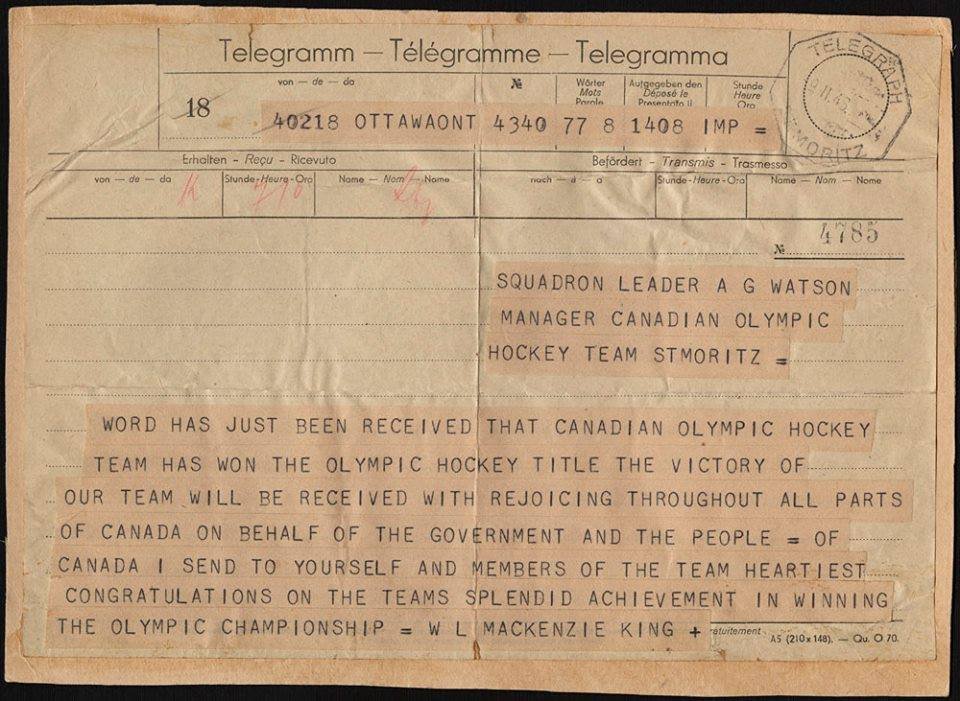 Telegramm — Télégramme — Telegramma
von — de — da
№
Wörter
Mots
Parole
Aufgegeben den
Déposé le
Presentato il
Stunde
Heure
Ora
TELEGRAPH
ST MORITZ
18
40218 OTTAWAONT 4340 77 8 1408 IMP =
Erhalten - Reçu - Ricevuto
Befördert - Transmis - Trasmesso
von — de — da
Stunde-Heure-Ora
Name — Nom — Name
nach — à — a
Stunde-Heure-Ora
Name — Nom — Nome
K
№ 4785
SQUADRON LEADER A G WATSON
MANAGER CANADIAN OLYMPIC
HOCKEY TEAM STMORITZ =
WORD HAS JUST BEEN RECEIVED THAT CANADIAN OLYMPIC HOCKEY
TEAM HAS WON THE OLYMPIC HOCKEY TITLE THE VICTORY OF
OUR TEAM WILL BE RECEIVED WITH REJOICING THROUGHOUT ALL PARTS
OF CANADA ON BEHALF OF THE GOVERNMENT AND THE PEOPLE = OF
CANADA I SEND TO YOURSELF AND MEMBERS OF THE TEAM HEARTIEST
CONGRATULATIONS ON THE TEAMS SPLENDID ACHIEVEMENT IN WINNING
THE OLYMPIC CHAMPIONSHIP = W L MACKENZIE KING +
A5 (210x148). — Qu. O 70.